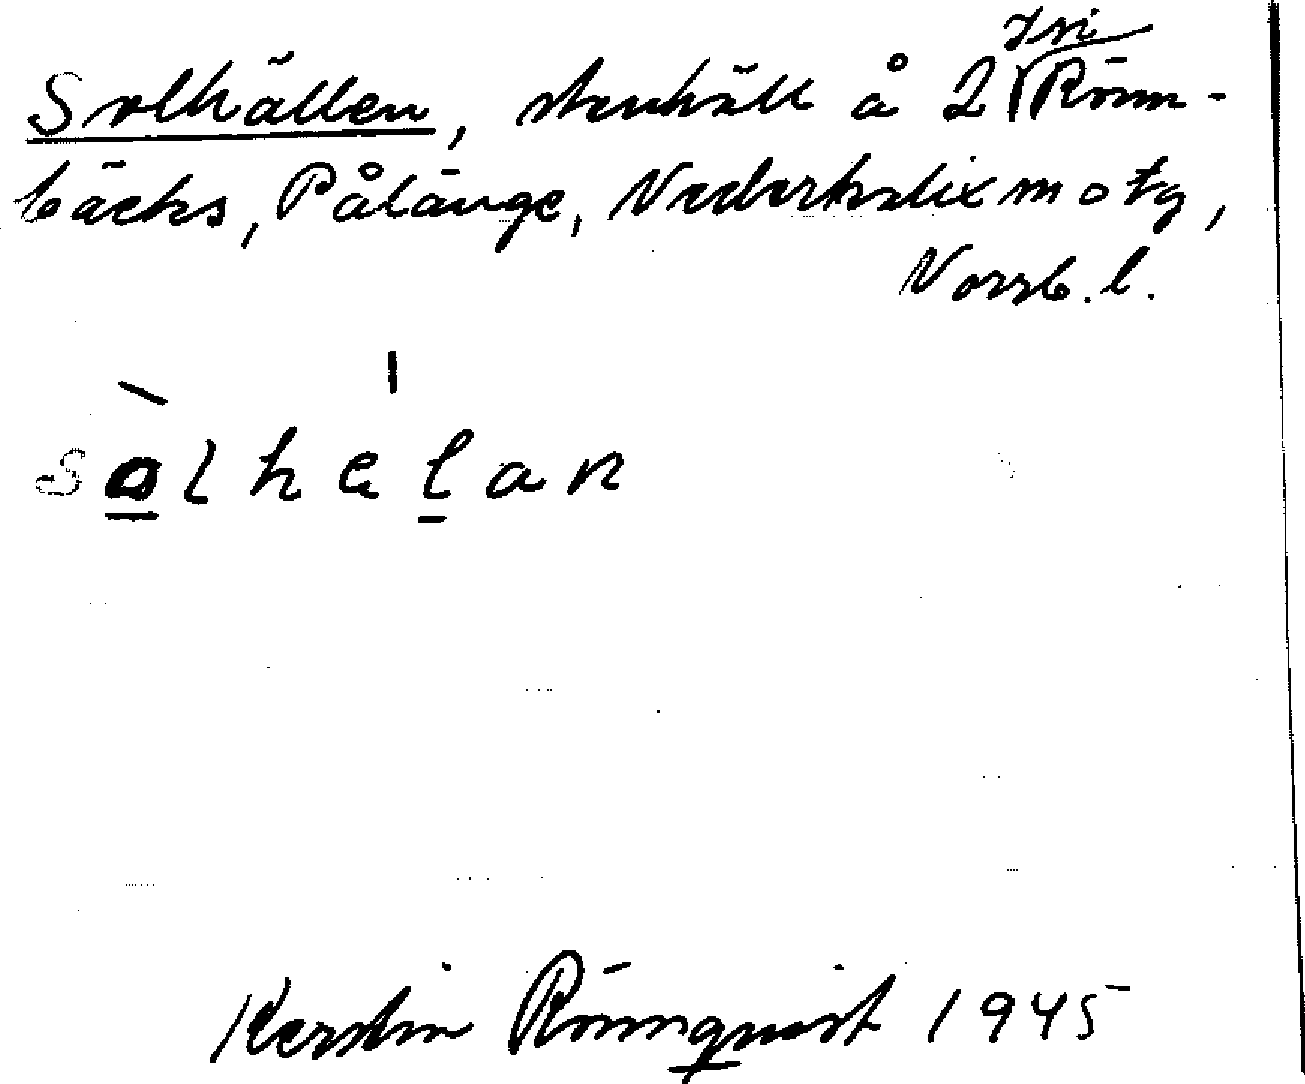 Solhällen, stenhäll å 2 Rönn-
bäcks, Pålänge, Nederkalix m otg,
Norrb. l.
solhelan
Kerstin Rönnqvist 1945